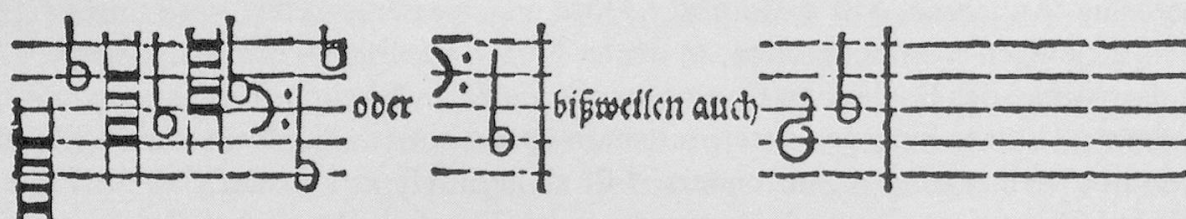 oder bißweilen auch